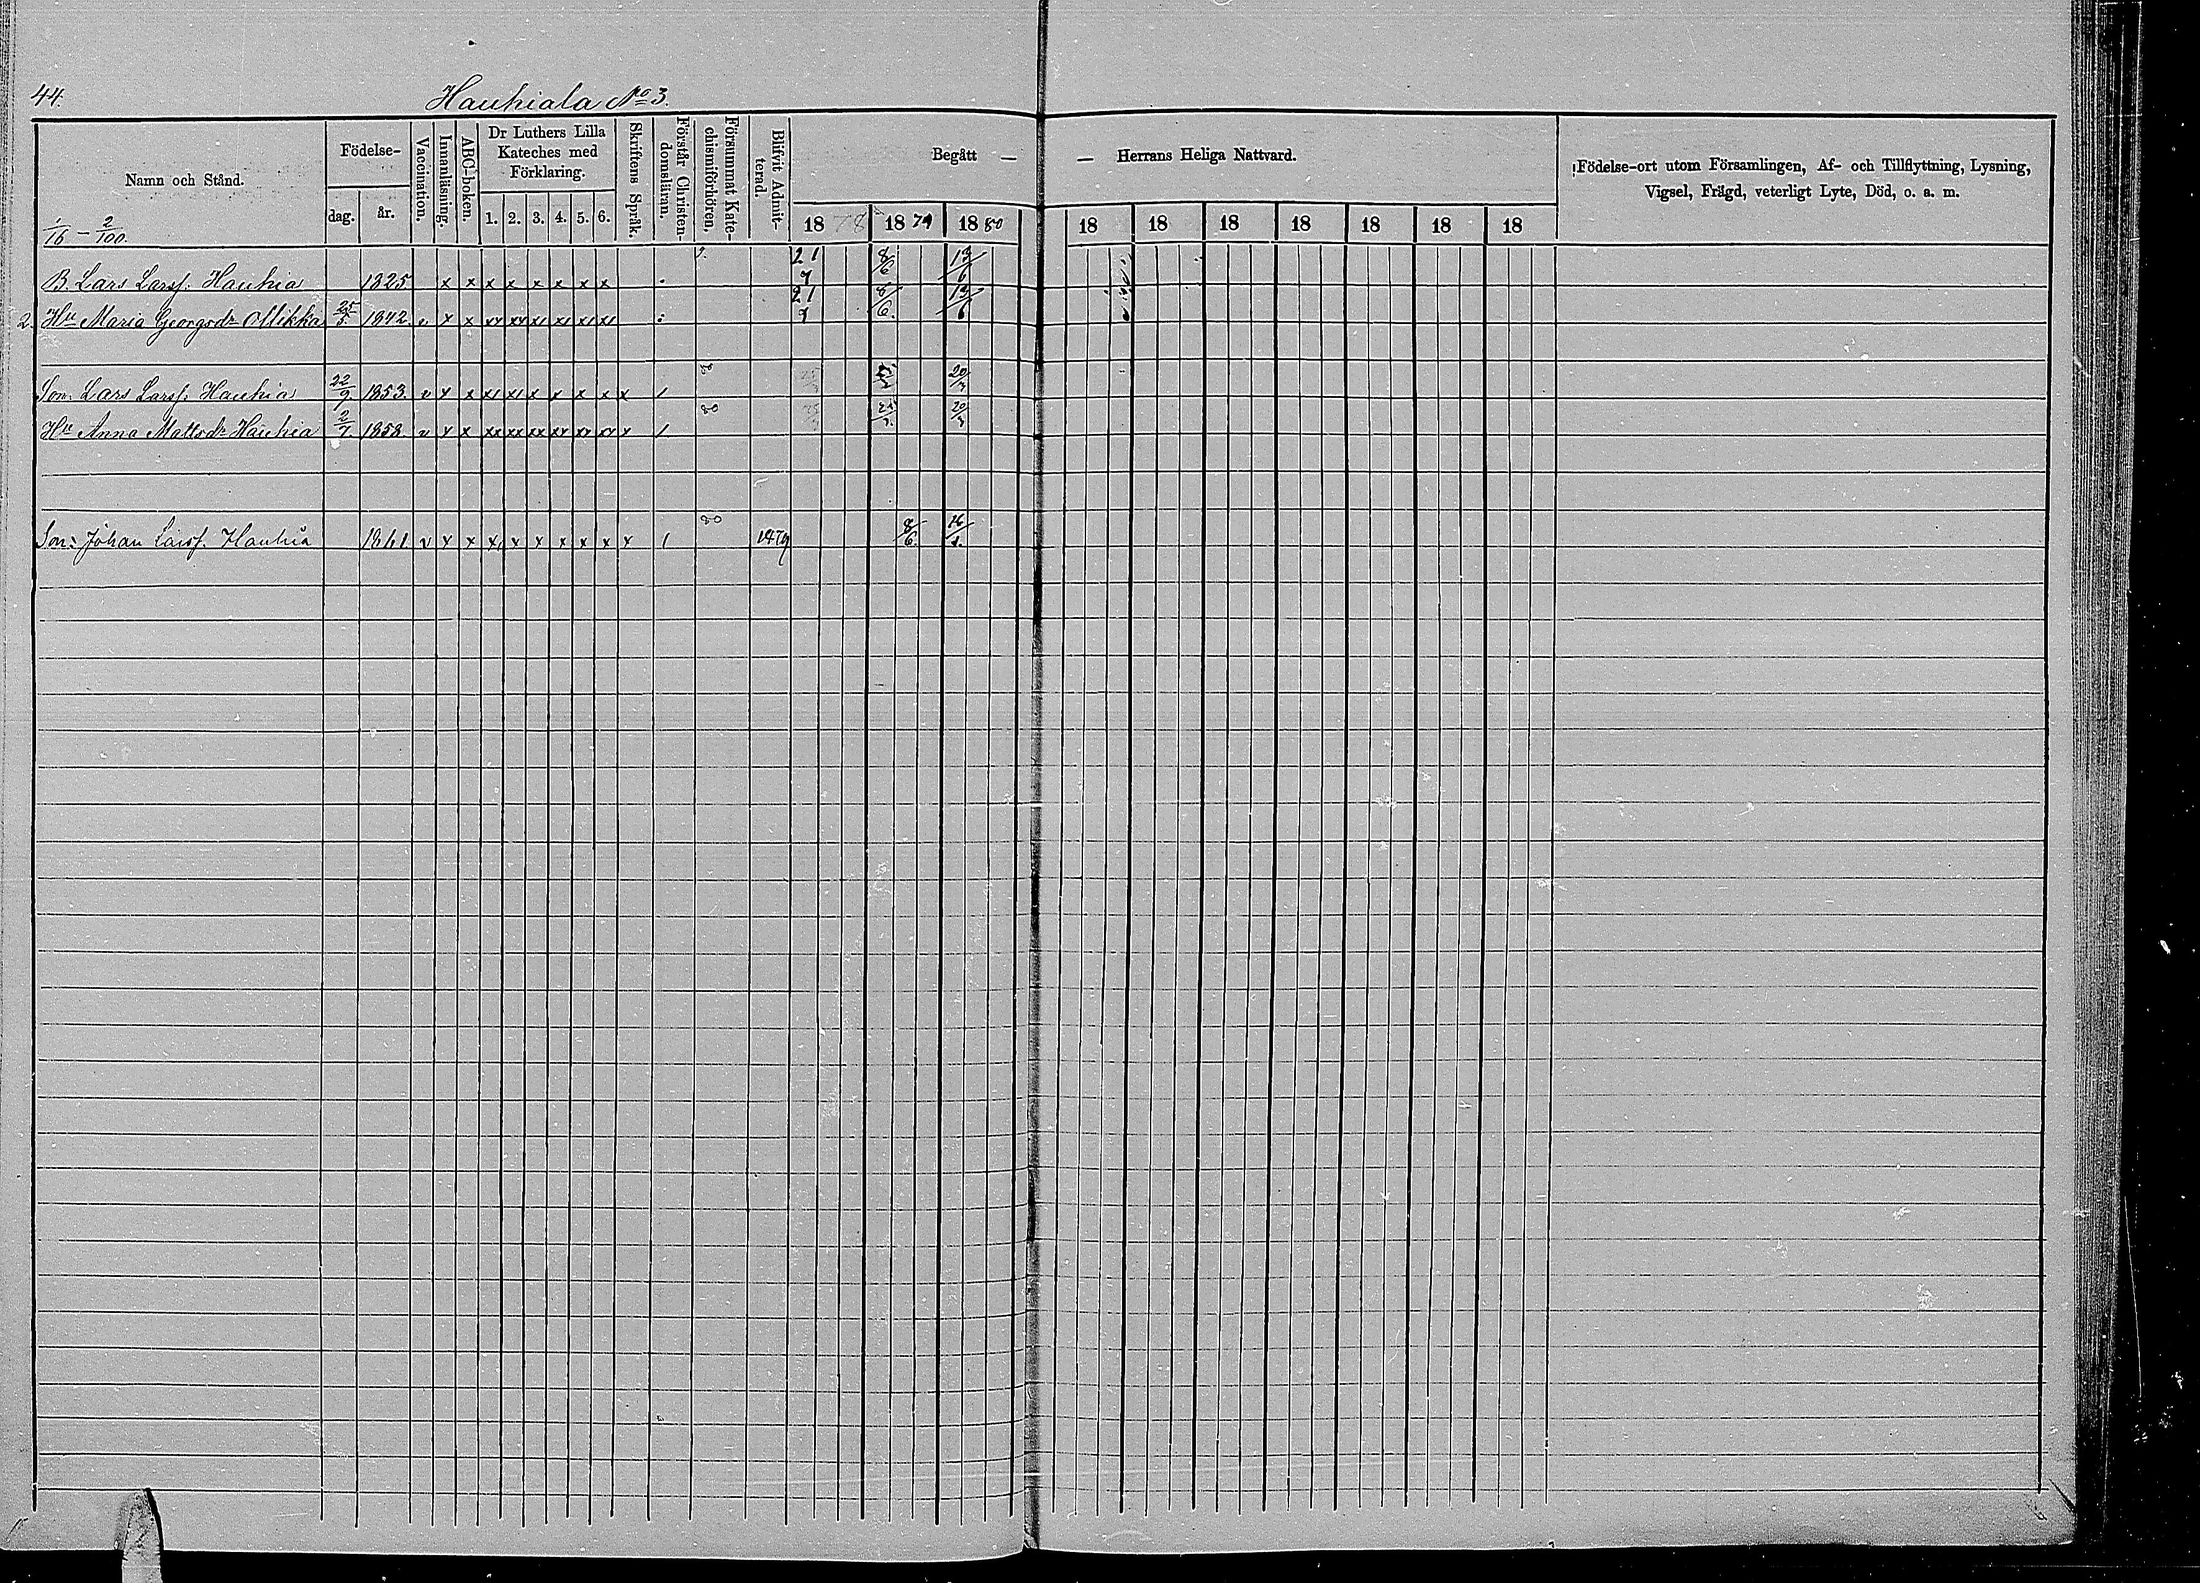 44.
Hauhiala No 3.
Namn och Stånd.
Födelse-
dag.
år.
Vaccination.
Innanläsning.
ABC-boken.
Dr Luthers Lilla
Kateches med
Förklaring.
1. 2. 3. 4. 5. 6.
Skriftens Språk.
Förstår Christen-
domsläran.
Försummat Kate-
chismiförhören.
Blifvit Admit-
terad.
Begått — — Herrans Heliga Nattvard.
1878 1879 1880 18 18 18 18 18 18 18
Födelse-ort utom Församlingen, Af- och Tillflyttning, Lysning,
Vigsel, Frägd, veterligt Lyte, Död, o. a. m.
1/16 — 2/100.
B. Lars Larsf. Hauhia 1825 x x x x x x x x 21/7 8/6 13/6
2. Hu Maria Georgsdr Mikka 25/5 1842. v x x xx xx xi xi xi xi 21/7 8/6. 13/6
Son: Lars Larsf. Hauhia 22/9 1853. v x x xi xi x x x x x / 80 20/3
Hu Anna Mattsdr Hauhia 2/7 1858. v x x xx xx xx xx xx xx x / 80 25/3 20/3
Son: Johan Larsf. Hauhia 1861 v x x x x x x x x x / 80 1879 8/6. 16/1.